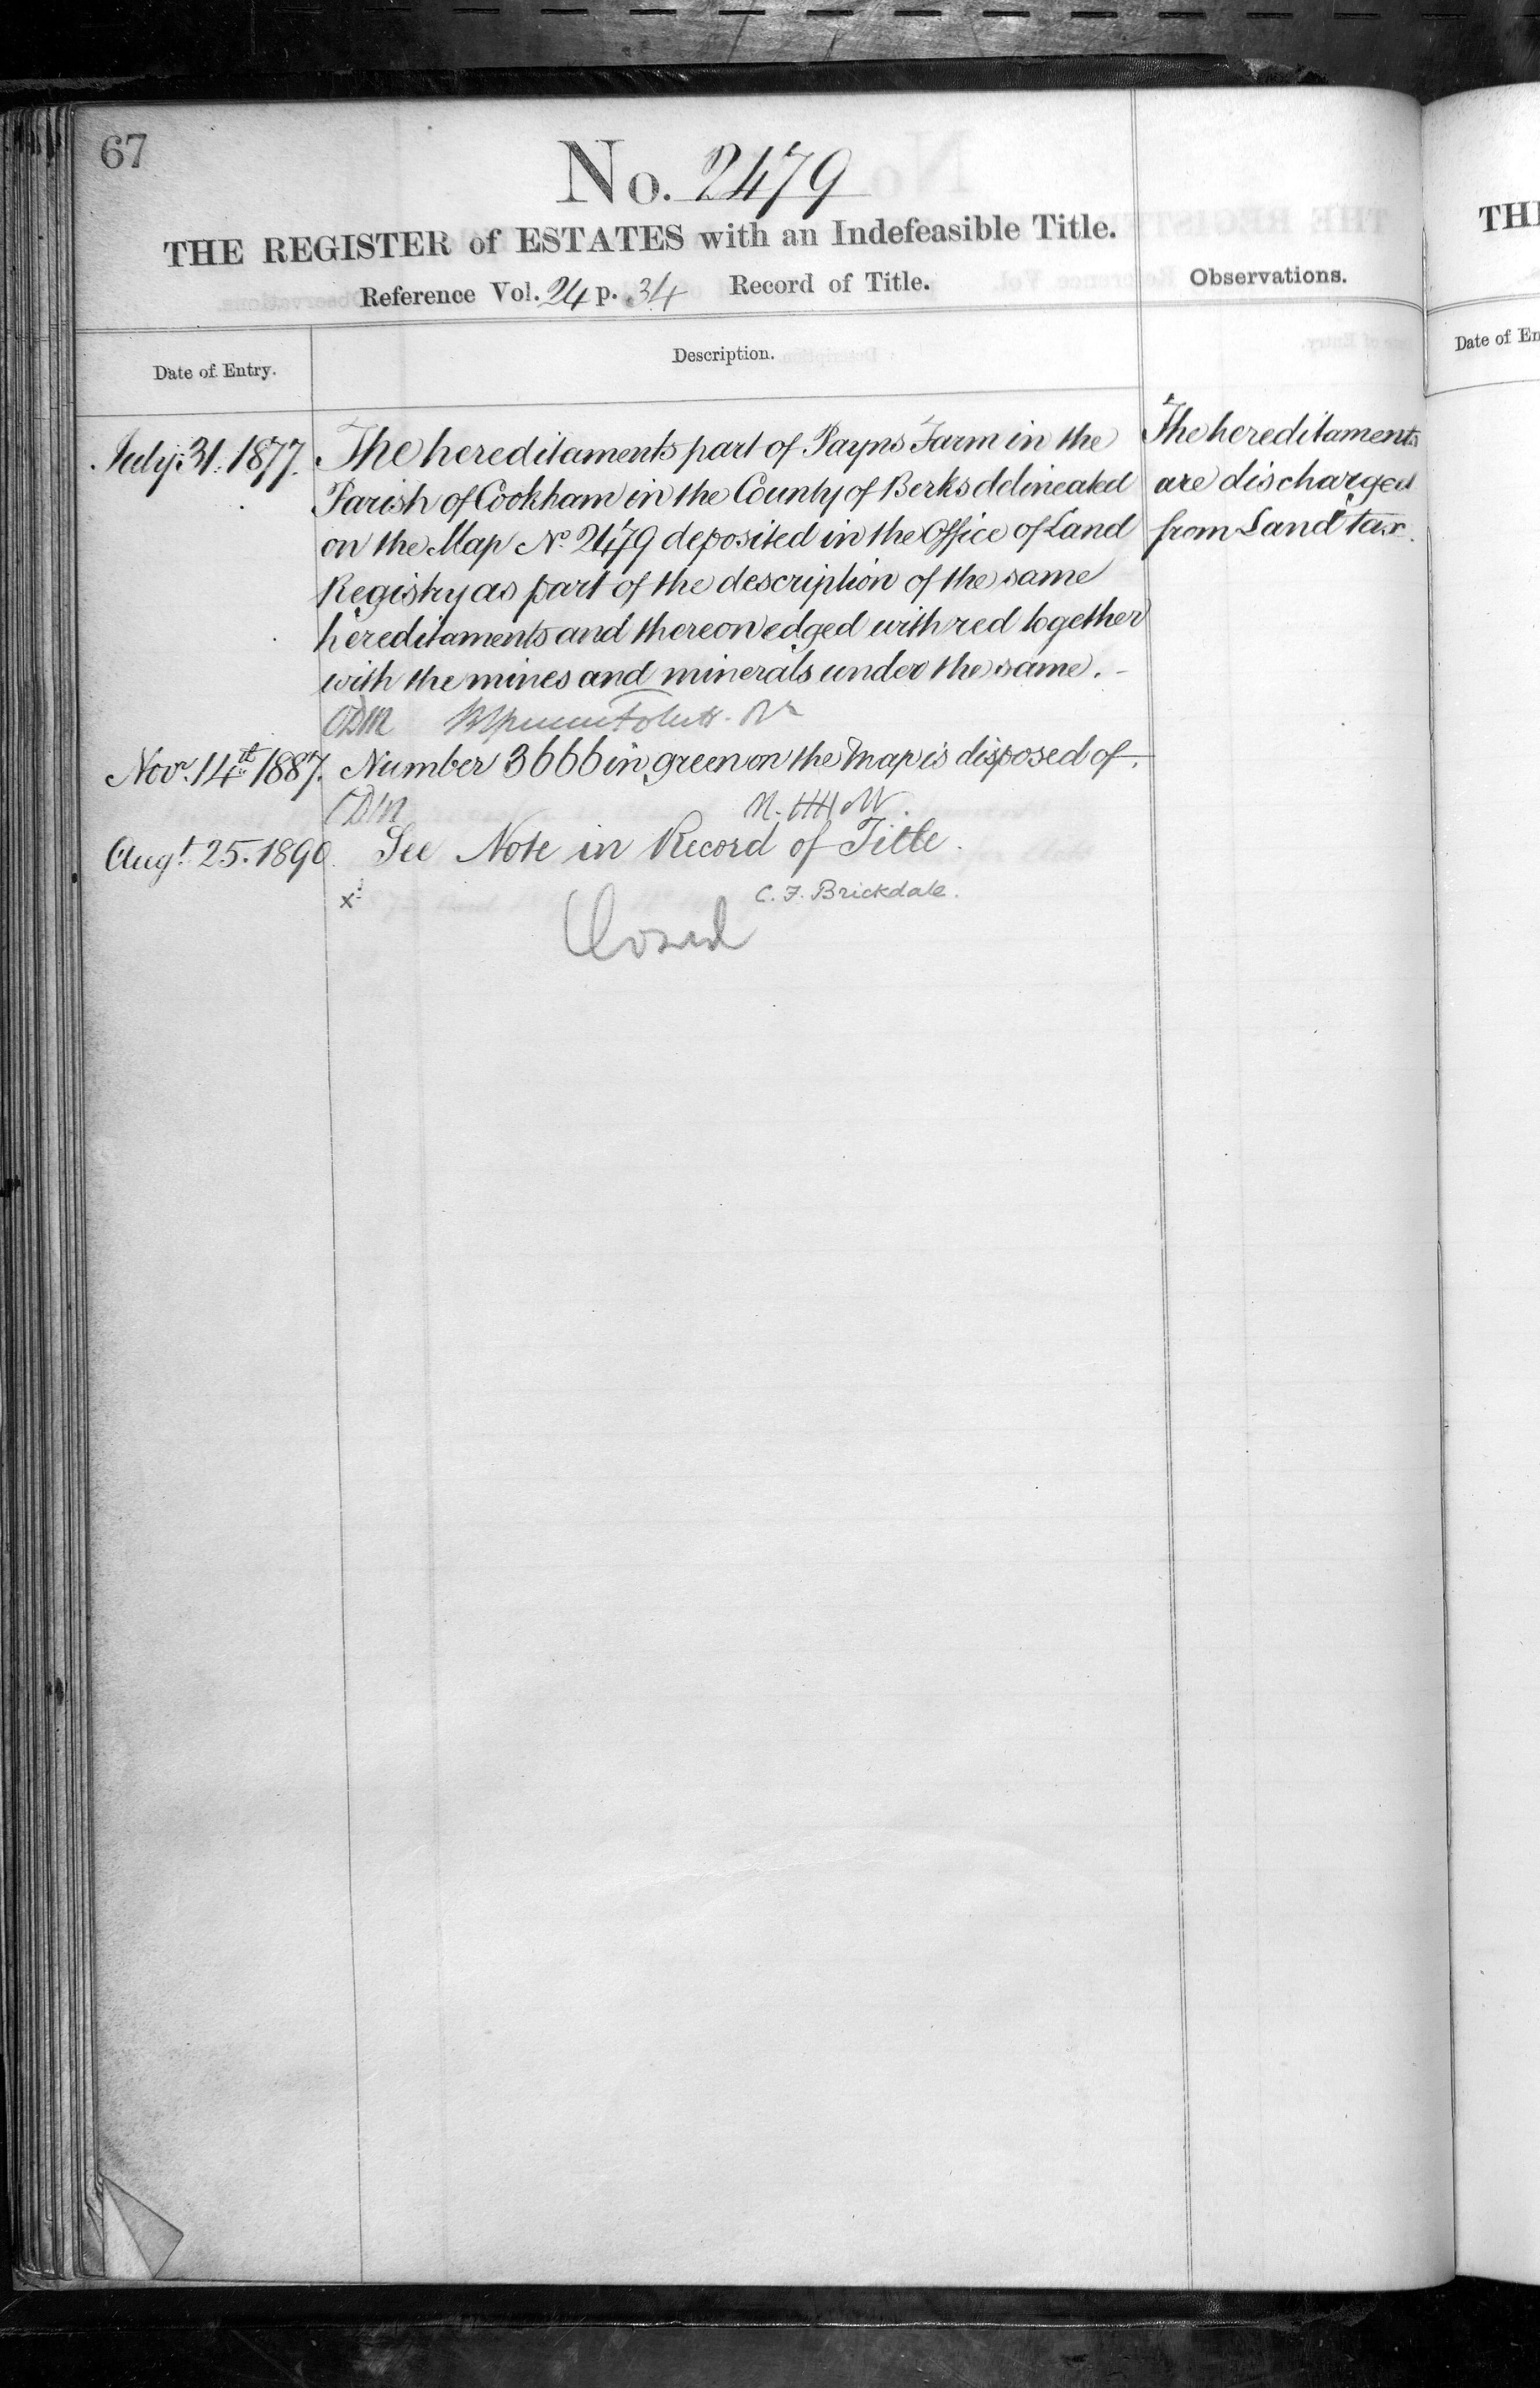 67
No. 2479
THE REGISTER of ESTATES with an Indefeasible Title.
Reference Vol. 24 p. 34 Record of Title.
Observations.
Date of Entry.
Description.
July. 31. 1877.
The hereditaments part of Payns Farm in the
Parish of Cookham in the County of Berks delineated
on the Map No. 2479 deposited in the Office of Land
Registry as part of the description of the same
hereditaments and thereon edged with red together
with the mines and minerals under the same.
The hereditaments
are discharged
from Land tax.
Novr. 14th 1887. Number 3666 in green on the Map is disposed of.
Augt. 25. 1890. See Note in Record of Title.
x
C. F. Brickdale.
Closed
TH
Date of En